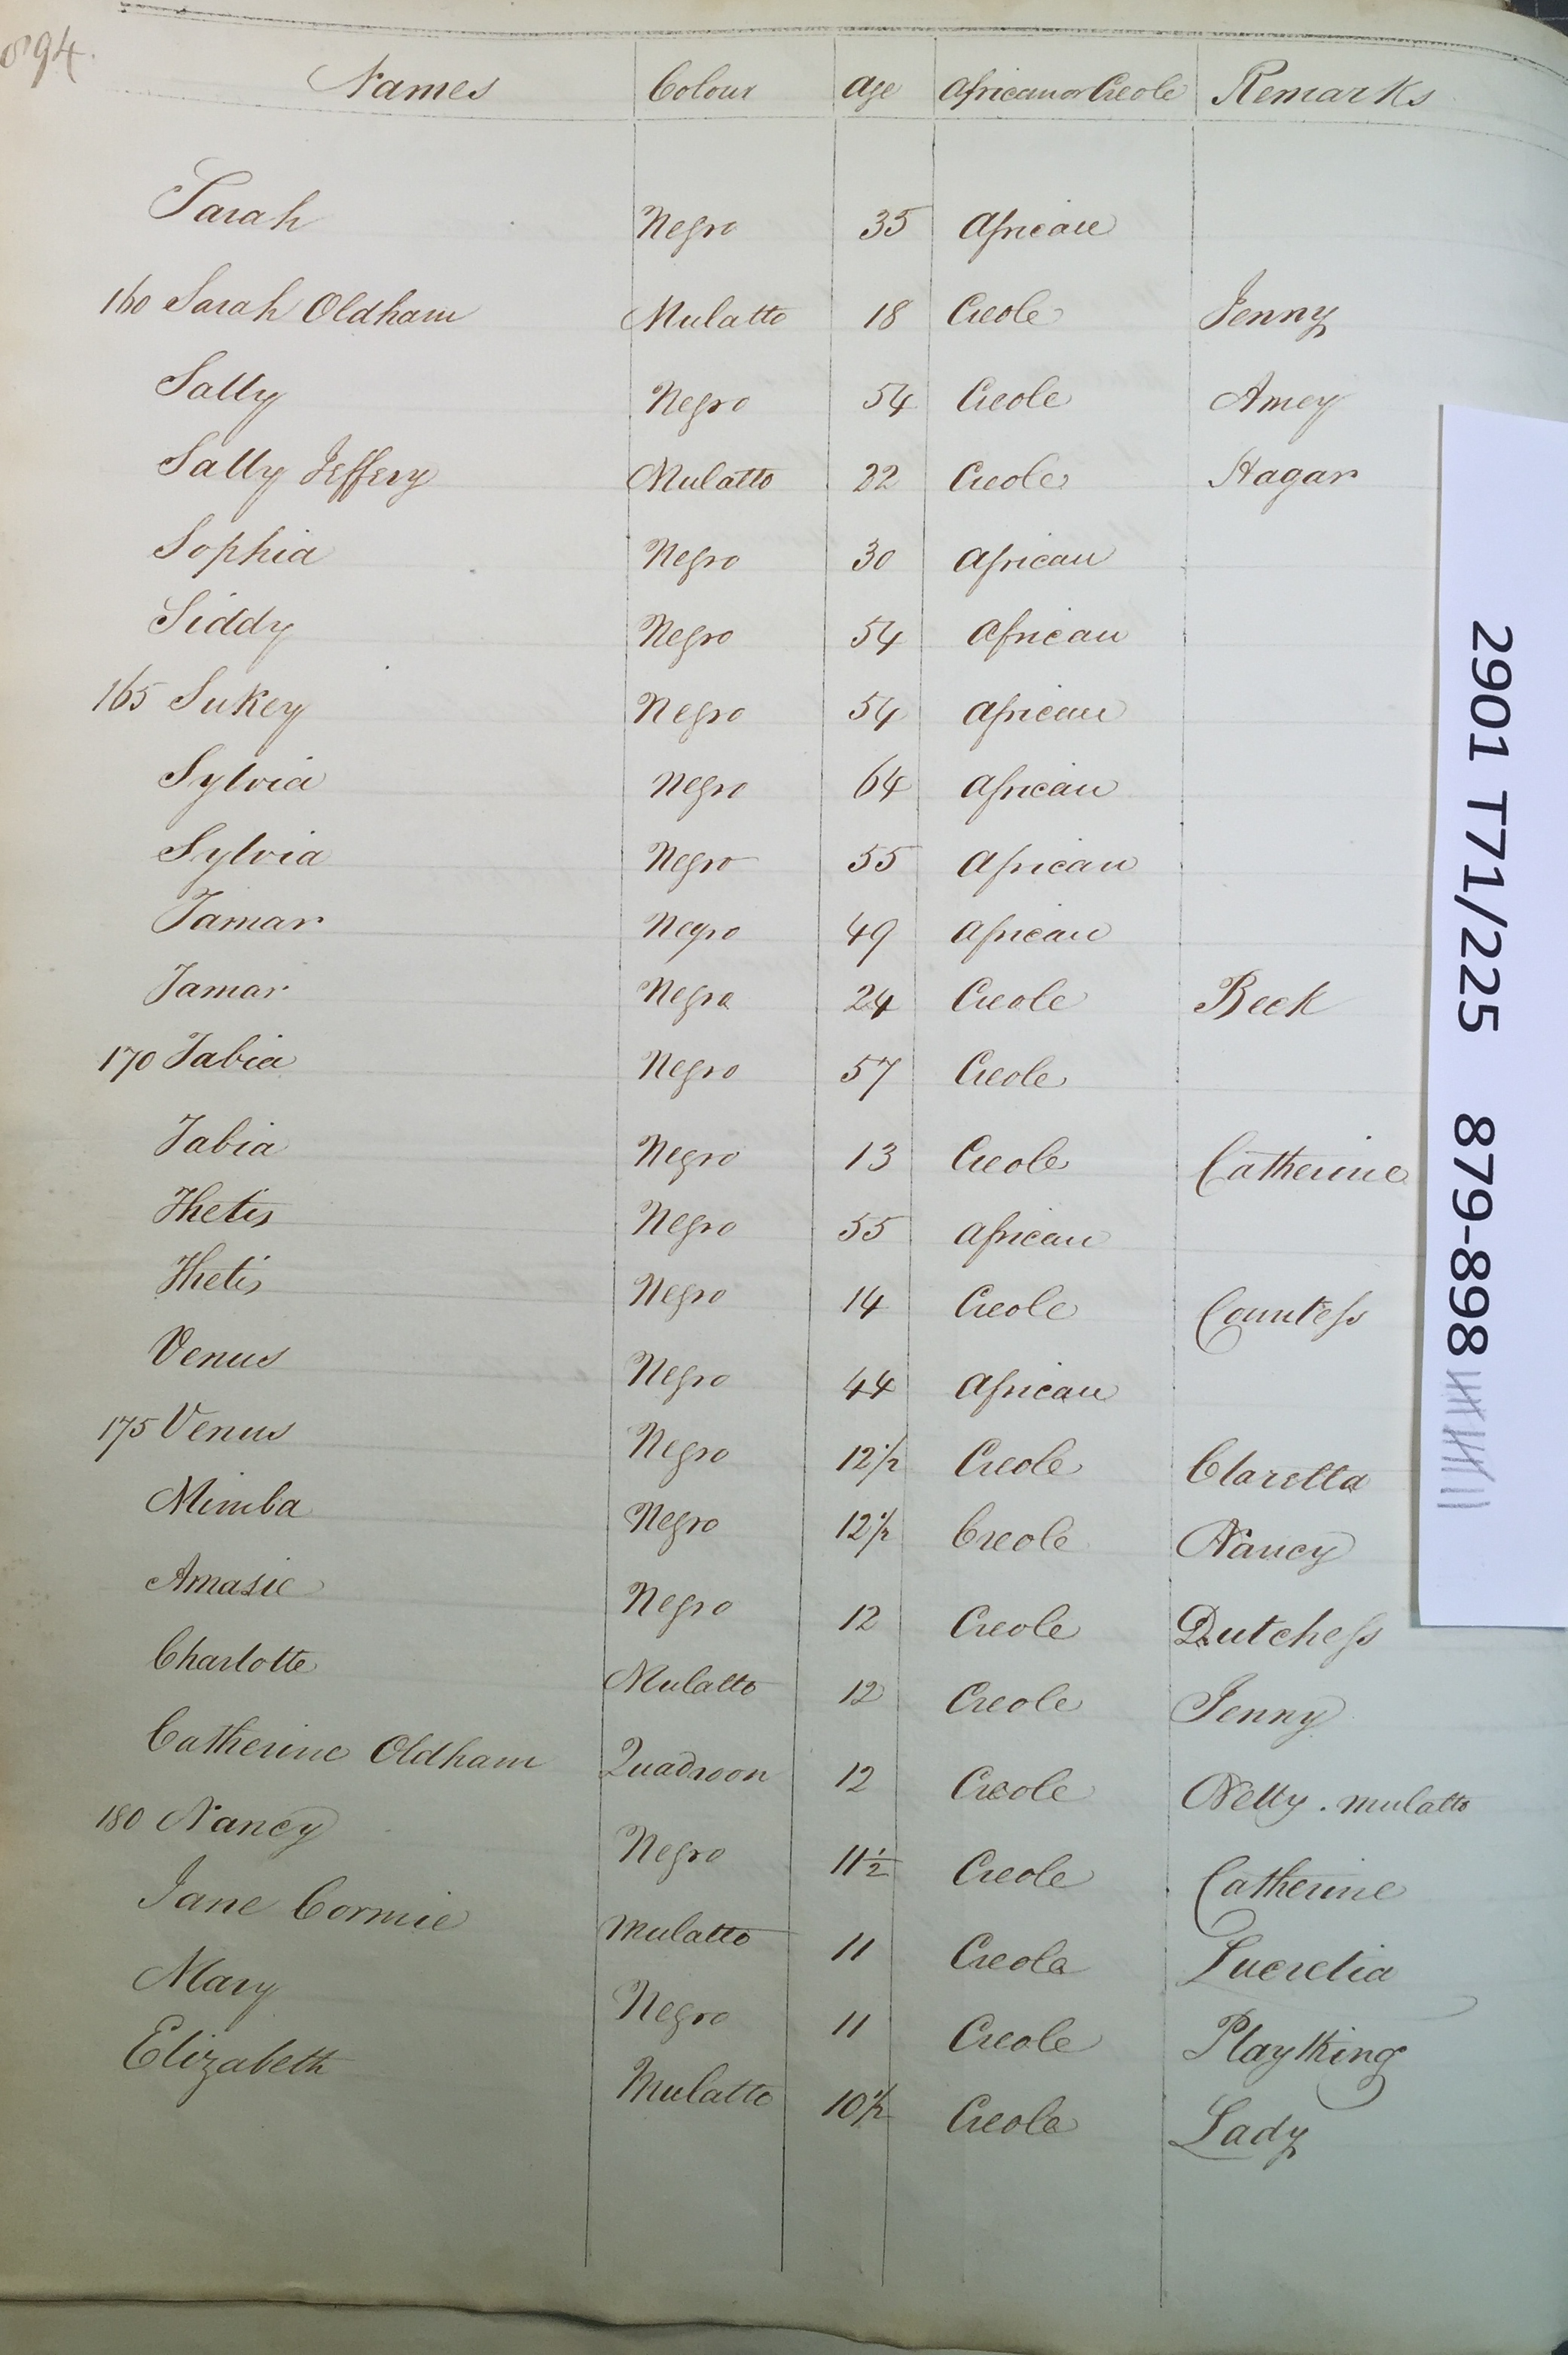 894.
Names Colour Age African or Creole Remarks
Sarah Negro 35 African
160 Sarah Oldham Mulatto 18 Creole Jenny
Sally Negro 54 Creole Amey
Sally Jeffery Mulatto 22 Creole Hagar
Sophia Negro 30 African
Siddy Negro 54 African
165 Sukey Negro 54 African
Sylvia Negro 64 African
Sylvia Negro 55 African
Tamar Negro 49 African
Tamar Negro 24 Creole Beck
170 Tabia Negro 57 Creole
Tabia Negro 13 Creole Catherine
Thetis Negro 55 African
Thetis Negro 14 Creole Countess
Venus Negro 44 African
175 Venus Negro 12 1/2 Creole Claretta
Mimba Negro 12 1/2 Creole Nancy
Amasie Negro 12 Creole Dutchess
Charlotte Mulatto 12 Creole Jenny
Catherine Oldham Quadroon 12 Creole Nelly. mulatto
180 Nancy Negro 11 1/2 Creole Catherine
Jane Cormie Mulatto 11 Creole Lucretia
Mary Negro 11 Creole Plaything
Elizabeth Mulatto 10 1/2 Creole Lady
2901 T71/225 879-898